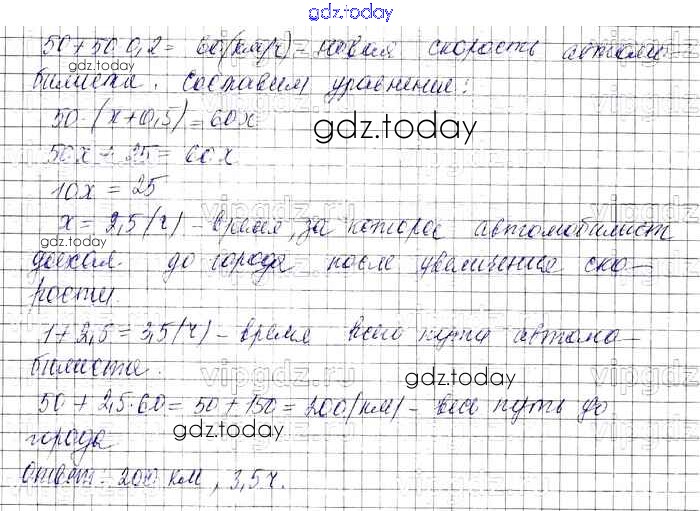 gdz.today
50+50·0,2= 60(км/ч) – новая скорость автомо-
gdz.today
билиста. Составим уравнение:
50·(x+0,5)=60x
gdz.today
50x+25=60x
10x=25
x=2,5(ч) – время, за которое автомобилист
gdz.today
доехал до города после увеличения ско-
рости.
vipgdz.ru
1+2,5=3,5(ч) – время всего пути автомо-
билиста.
vipgdz.ru
gdz.today
50+2,5·60=50+150=200(км) – весь путь до
gdz.today
города
Ответ: 200 км, 3,5ч.